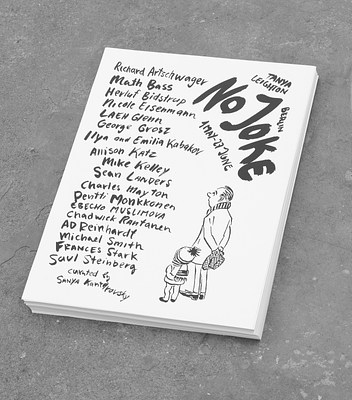 Richard Artschwager
Math Bass
Herluf Bidstrup
Nicole Eisenmann
Leah Glenn
George Grosz
Ilya and Emilia Kabakov
Allison Katz
Mike Kelley
Sean Landers
Charles Mayton
Pentti Monkkonen
Ebecho Muslimova
Chadwick Rantanen
AD Reinhardt
Michael Smith
Frances Stark
Saul Steinberg
curated by
Sanya Kantarovsky
TANYA
LEIGHTON
BERLIN
NO JOKE